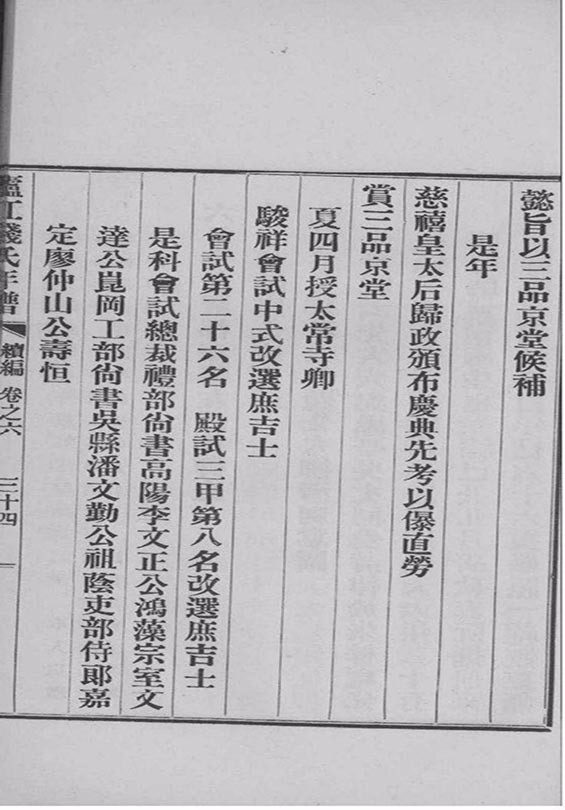 懿旨以三品京堂候補
是年
慈禧皇太后歸政頒布慶典先考以儤直勞
賞三品京堂
夏四月授太常寺卿
駿祥會試中式改選庶吉士
會試第二十六名 殿試三甲第八名改選庶吉士
是科會試總裁禮部尚書高陽李文正公鴻藻宗室文
達公崑岡工部尚書吳縣潘文勤公祖蔭吏部侍郎嘉
定廖仲山公壽恒
廬江錢氏年譜 續編 卷之六 三十四